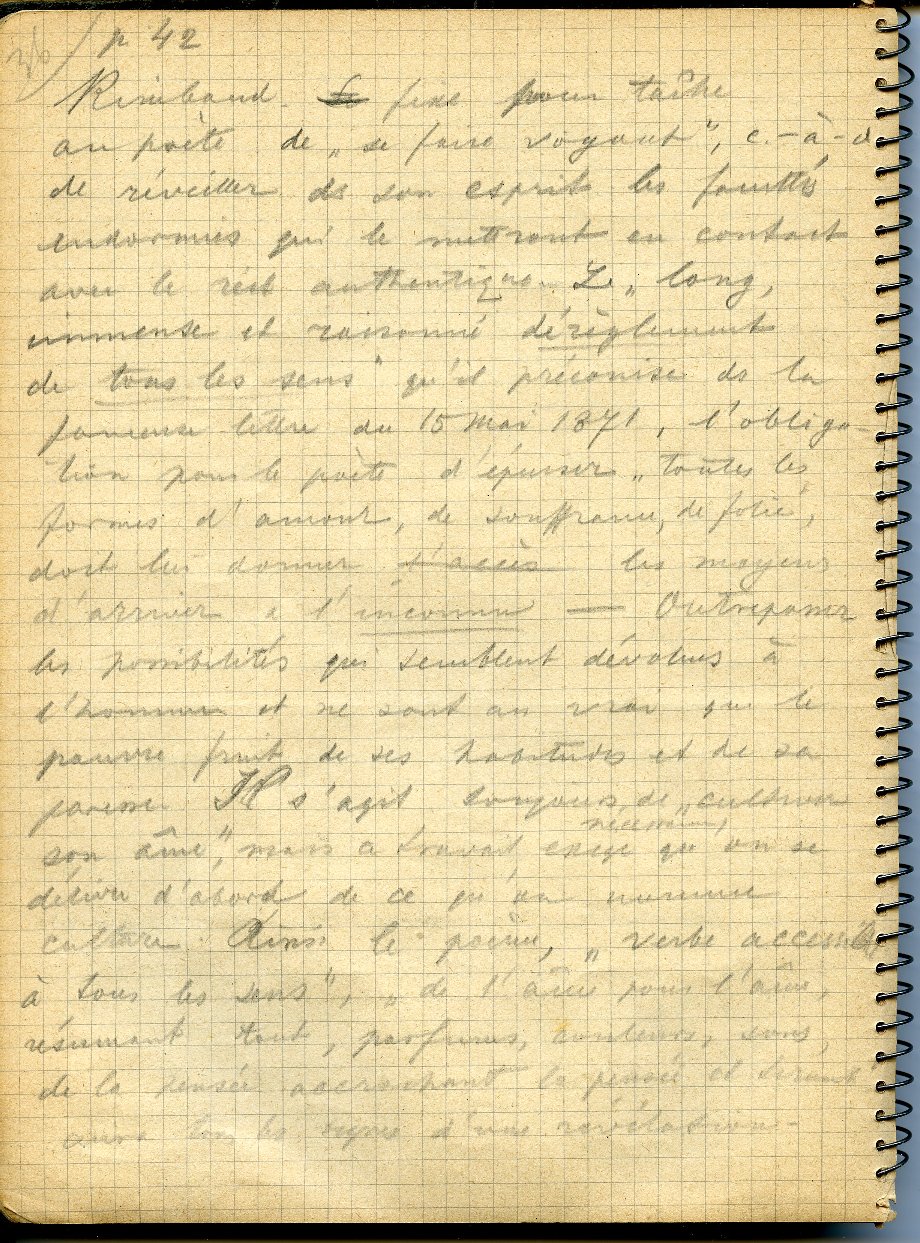 36/ p 42
Rimbaud. fixe pour tâche
au poète de „se faire voyant", c.-à-d
de réveiller ds son esprit les facultés
endormies qui le mettront en contact
avec le réel authentique. L „long,
immense et raisonné dérèglement
de tous les sens" qu'il préconise ds la
fameuse lettre du 15 Mai 1871, l'obliga-
tion pour le poète d'épuiser „toutes les
formes d'amour, de souffrance, de folie,
doit lui donner l'accès les moyens
d'arriver à l'inconnu — Outrepasser
les possibilités qui semblent dévolues à
l'homme et ne sont au vrai que le
pauvre fruit de ses habitudes et de sa
paresse. Il s'agit toujours de „cultiver
son âme", mais ce travail nécessaire, exige qu'on se
délivre d'abord de ce qu'on nomme
culture. Ainsi le poème, „verbe accessible
à tous les sens", „de l'âme pour l'âme,
résumant tout, parfums, couleurs, sons,
de la pensée accrochant la pensée et tirant"
tous les signes d'une révélation-